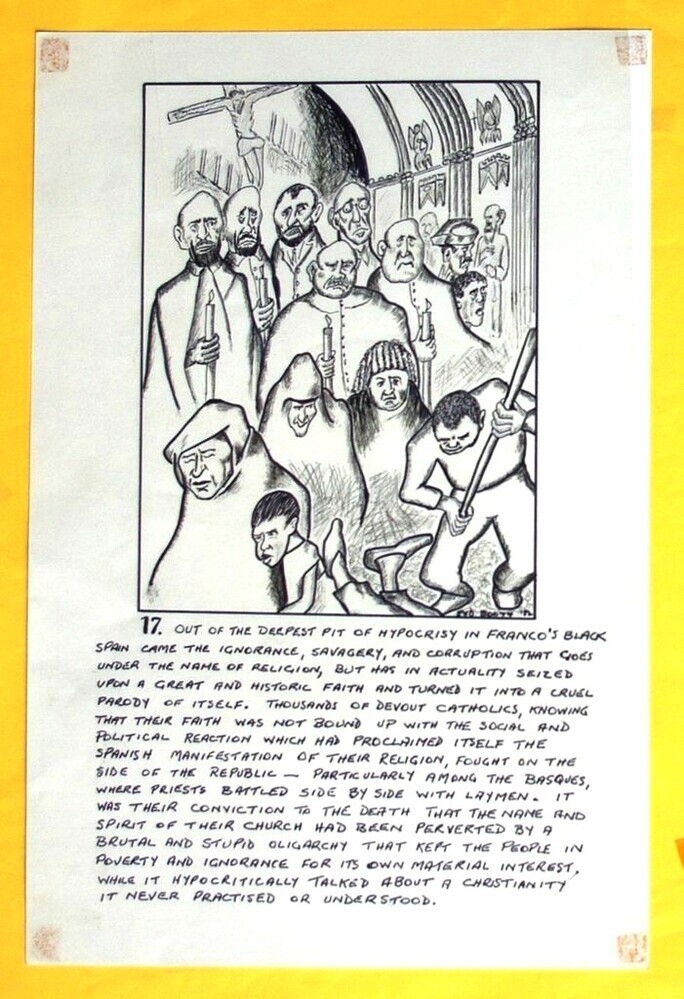 17. OUT OF THE DEEPEST PIT OF HYPOCRISY IN FRANCO'S BLACK
SPAIN CAME THE IGNORANCE, SAVAGERY, AND CORRUPTION THAT GOES
UNDER THE NAME OF RELIGION, BUT HAS IN ACTUALITY SEIZED
UPON A GREAT AND HISTORIC FAITH AND TURNED IT INTO A CRUEL
PARODY OF ITSELF. THOUSANDS OF DEVOUT CATHOLICS, KNOWING
THAT THEIR FAITH WAS NOT BOUND UP WITH THE SOCIAL AND
POLITICAL REACTION WHICH HAD PROCLAIMED ITSELF THE
SPANISH MANIFESTATION OF THEIR RELIGION, FOUGHT ON THE
SIDE OF THE REPUBLIC — PARTICULARLY AMONG THE BASQUES,
WHERE PRIESTS BATTLED SIDE BY SIDE WITH LAYMEN. IT
WAS THEIR CONVICTION TO THE DEATH THAT THE NAME AND
SPIRIT OF THEIR CHURCH HAD BEEN PERVERTED BY A
BRUTAL AND STUPID OLIGARCHY THAT KEPT THE PEOPLE IN
POVERTY AND IGNORANCE FOR ITS OWN MATERIAL INTEREST,
WHILE IT HYPOCRITICALLY TALKED ABOUT A CHRISTIANITY
IT NEVER PRACTISED OR UNDERSTOOD.